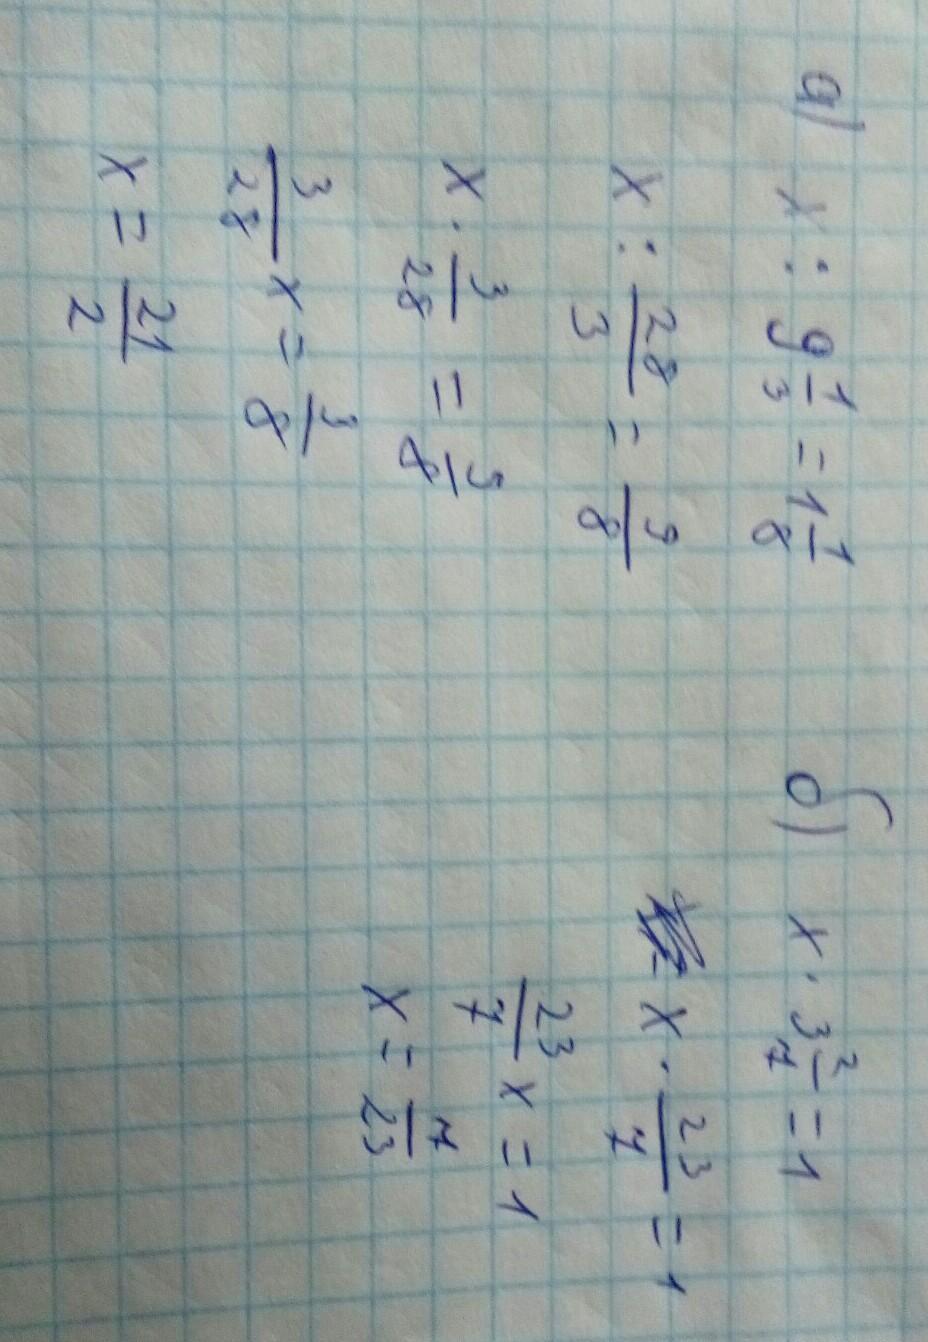 а) x : 9 1/3 = 1 1/8
x : 28/3 = 9/8
x · 3/28 = 9/8
3/28 x = 9/8
x = 21/2
б) x · 3 2/7 = 1
x · 23/7 = 1
23/7 x = 1
x = 7/23